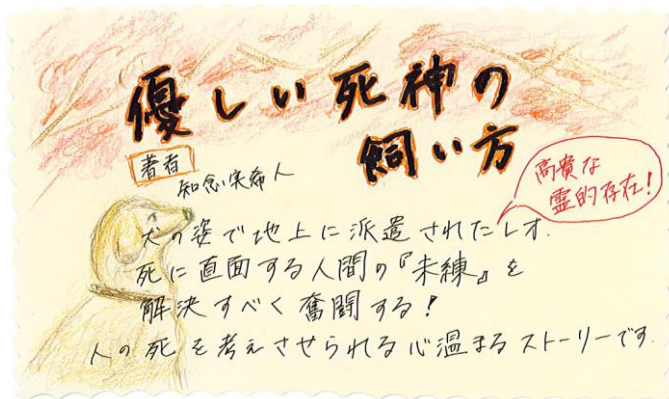 優しい死神の
飼い方
著者
知念実希人
高貴な
霊的存在!
犬の姿で地上に派遣されたレオ.
死に直面する人間の『未練』を
解決すべく奮闘する!
人の死を考えさせられる心温まるストーリーです.